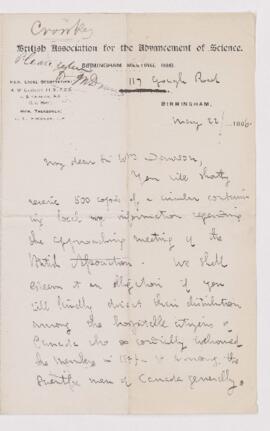 Crosskey
British Association for the Advancement of Science.
BIRMINGHAM MEETING, 1886.
Please
117 Gough Road
HON. LOCAL SECRETARIES,
HON. TREASURER,
BIRMINGHAM,
May 22 1886
My dear Sir Wm Dawson,
You will shortly
receive 500 copies of a circular contain-
ing local information regarding
the approaching meeting of the
British Association. We shall
esteem it an obligation if you
will kindly direct their distribution
among the hospitable citizens of
Canada who so cordially welcomed
the Members in & among the
scientific men of Canada generally.